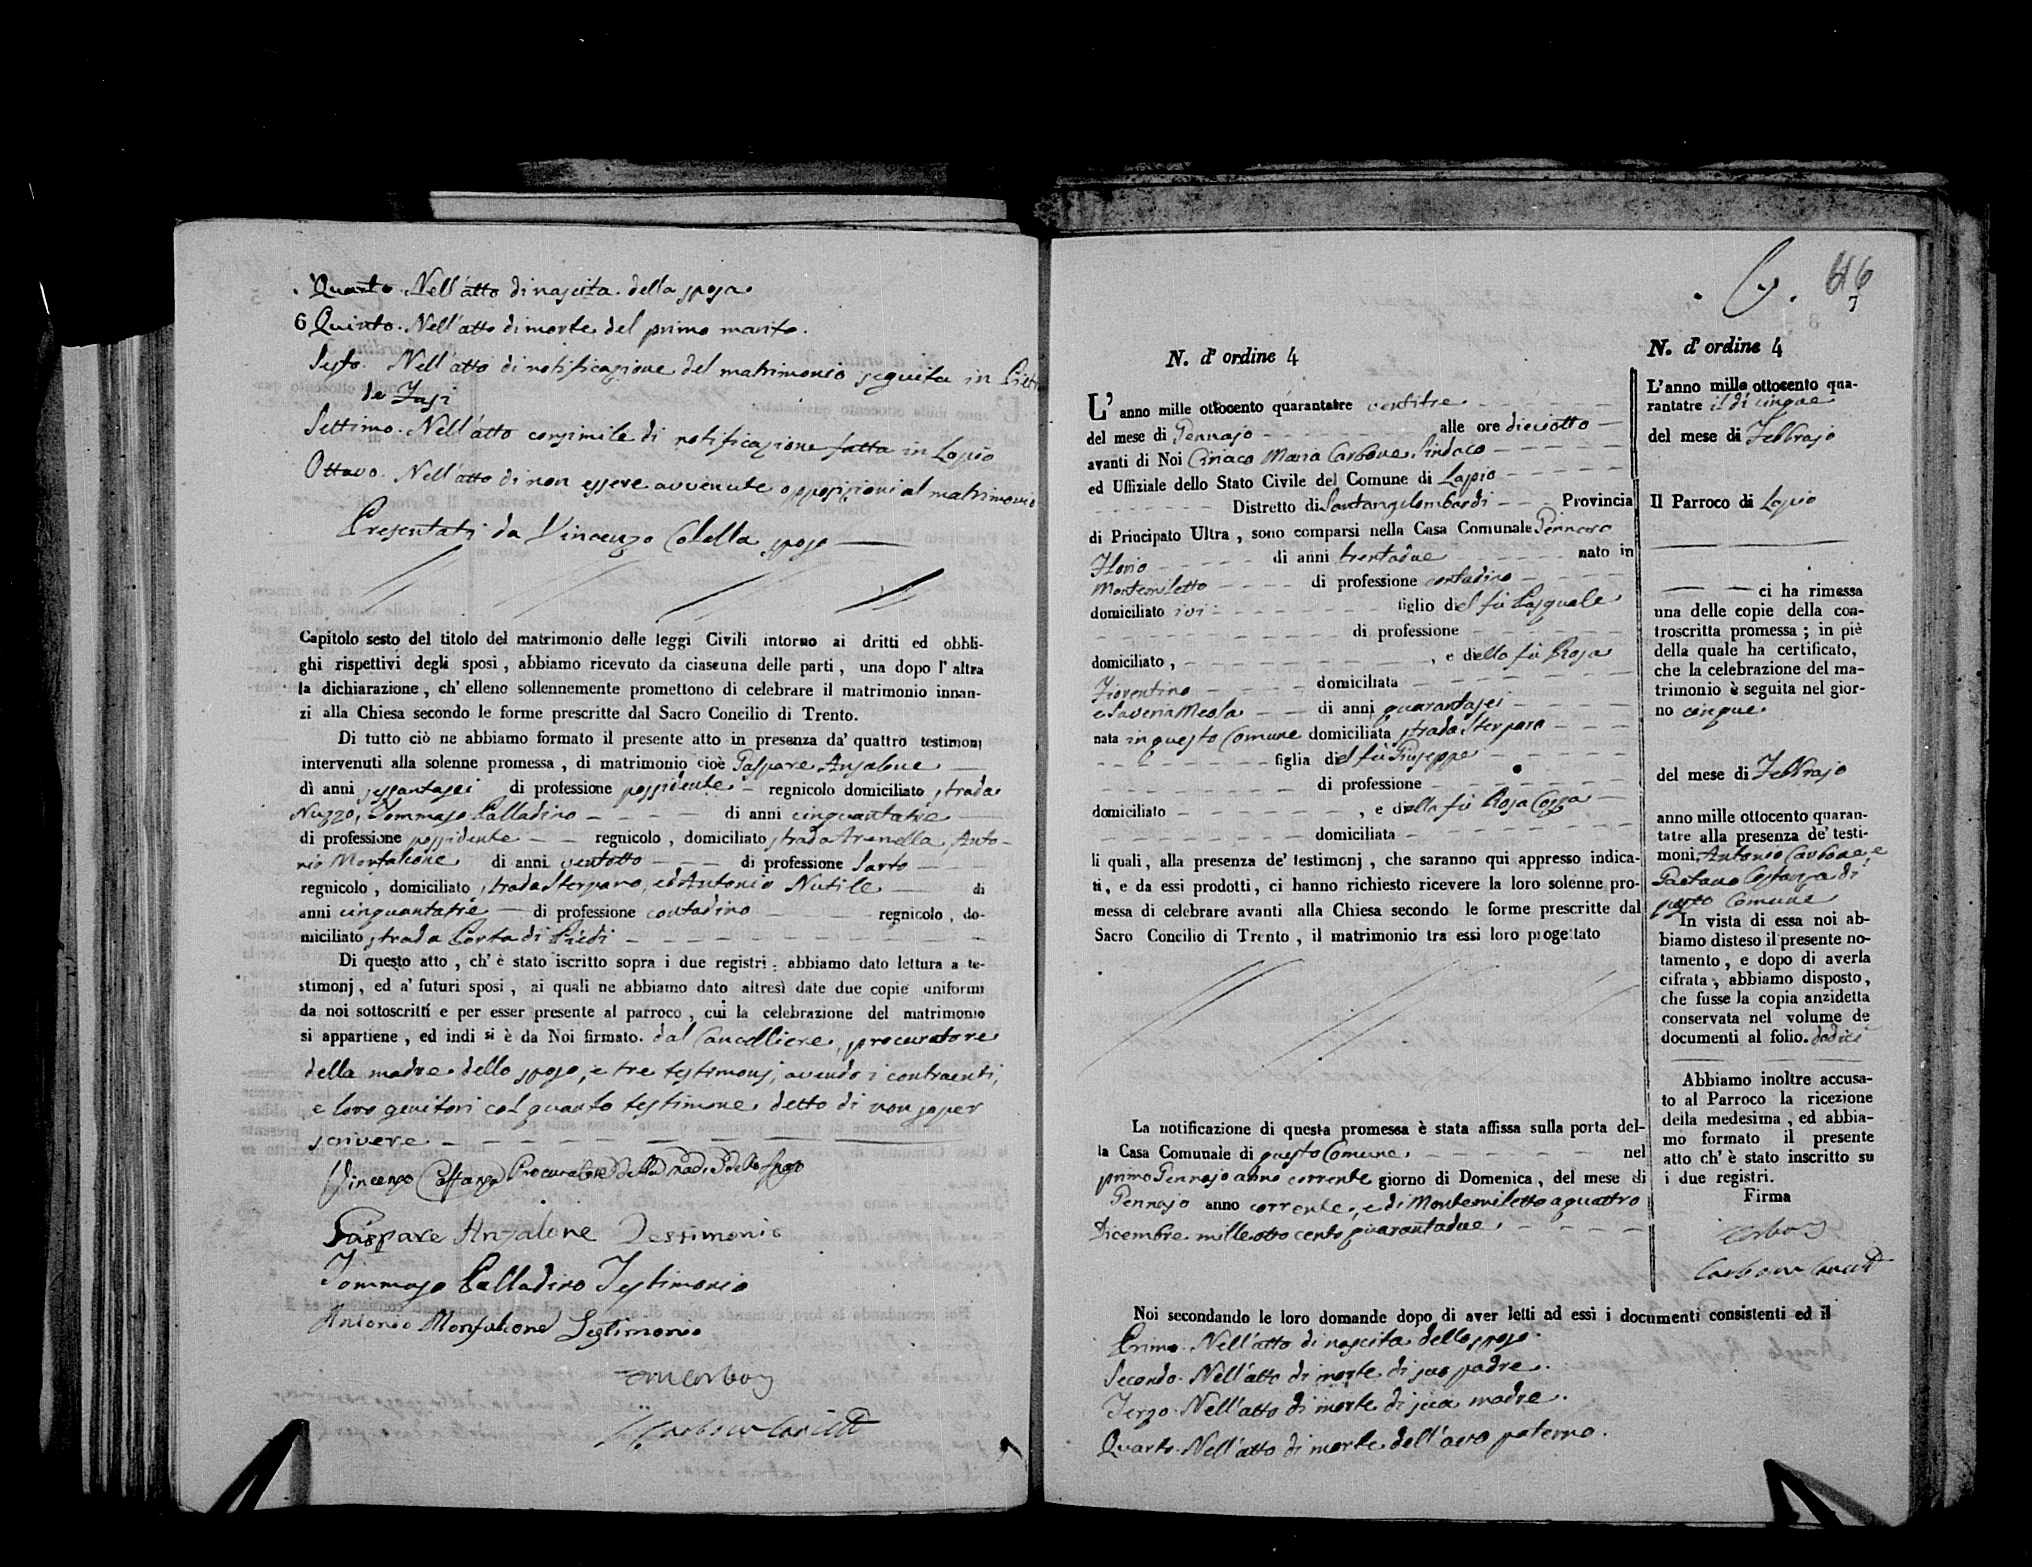 Quarto. Nell'atto di nascita della sposa.
6 Quinto. Nell'atto di morte del primo marito.
Sesto. Nell'atto di notificazione del matrimonio seguita in Pietra
de Fusi
Settimo. Nell'atto consimile di notificazione fatta in Lapio
Ottavo. Nell'atto di non essere avvenute opposizioni al matrimonio
Presentati da Vincenzo Colella sposo
Capitolo sesto del titolo del matrimonio delle leggi Civili intorno ai dritti ed obbli-
ghi rispettivi degli sposi, abbiamo ricevuto da ciascuna delle parti, una dopo l'altra
la dichiarazione, ch'elleno sollennemente promettono di celebrare il matrimonio innan-
zi alla Chiesa secondo le forme prescritte dal Sacro Concilio di Trento.
Di tutto ciò ne abbiamo formato il presente atto in presenza da' quattro testimonj
intervenuti alla solenne promessa, di matrimonio cioè Gaspare Anzalone
di anni sessantasei di professione possidente regnicolo domiciliato strada
Nuzzo, Tommaso Palladino di anni cinquantatre
di professione possidente regnicolo, domiciliato strada Arenella, Anto-
nio Monfalcone di anni ventotto di professione Sarto
regnicolo, domiciliato strada Sterpara, ed Antonio Nutile di
anni cinquantatre di professione contadino regnicolo, do-
miciliato strada Porta di Piedi
Di questo atto, ch'è stato iscritto sopra i due registri: abbiamo dato lettura a te-
stimonj, ed a' futuri sposi, ai quali ne abbiamo dato altresì date due copie uniformi
da noi sottoscritti e per esser presente al parroco, cui la celebrazione del matrimonio
si appartiene, ed indi si è da Noi firmato. dal Cancelliere, procuratore
della madre dello sposo, e tre testimonj, avendo i contraenti,
e loro genitori col quarto testimone detto di non saper
scrivere
Vincenzo Costanza Procuratore della madre dello sposo
Gaspare Anzalone Testimonio
Tommaso Palladino Testimonio
Antonio Monfalcone Testimonio
Carbone Canc
6. 46
7
N. d'ordine 4
L'anno mille ottocento quarantatre ventitre
del mese di Gennajo alle ore dieciotto
avanti di Noi Ciriaco Maria Carbone Sindaco
ed Uffiziale dello Stato Civile del Comune di Lapio
Distretto di Santangilombardi Provincia
di Principato Ultra, sono comparsi nella Casa Comunale Gennaro
Florio di anni trentadue nato in
Montemiletto di professione contadino
domiciliato ivi figlio del fù Pasquale
di professione
domiciliato, , e della fù Rosa
Fiorentino domiciliata
e Saveria Meola di anni quarantasei
nata in questo Comune domiciliata strada Sterpara
figlia del fù Giuseppe
di professione
domiciliato , e della fù Rosa Cozza
domiciliata
li quali, alla presenza de' testimonj, che saranno qui appresso indica-
ti, e da essi prodotti, ci hanno richiesto ricevere la loro solenne pro-
messa di celebrare avanti alla Chiesa secondo le forme prescritte dal
Sacro Concilio di Trento, il matrimonio tra essi loro progettato
La notificazione di questa promessa è stata affissa sulla porta del-
la Casa Comunale di questo Comune nel
primo Gennajo anno corrente giorno di Domenica, del mese di
Gennajo anno corrente, e di Montemiletto a quattro
Dicembre mille otto cento quarantadue
Noi secondando le loro domande dopo di aver letti ad essi i documenti consistenti ed il
Primo. Nell'atto di nascita dello sposo.
Secondo. Nell'atto di morte di suo padre.
Terzo. Nell'atto di morte di sua madre.
Quarto. Nell'atto di morte dell'avo paterno.
N. d'ordine 4
L'anno mille ottocento qua-
rantatre il dì cinque
del mese di Febbrajo
Il Parroco di Lapio
ci ha rimessa
una delle copie della con-
troscritta promessa; in piè
della quale ha certificato,
che la celebrazione del ma-
trimonio è seguita nel gior-
no cinque
del mese di Febbrajo
anno mille ottocento quaran-
tatre alla presenza de' testi-
moni Antonio Carbone, e
Gaetano Costanza di
questo Comune
In vista di essa noi ab-
biamo disteso il presente no-
tamento, e dopo di averla
cifrata, abbiamo disposto,
che fusse la copia anzidetta
conservata nel volume de
documenti al folio. dodici
Abbiamo inoltre accusa-
to al Parroco la ricezione
della medesima, ed abbia-
mo formato il presente
atto ch'è stato inscritto su
i due registri.
Firma
Carbone Canc